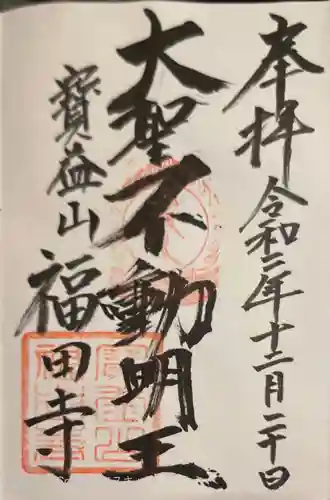 奉拝 令和二年十二月二十日
大聖不動明王
寶益山 福田寺